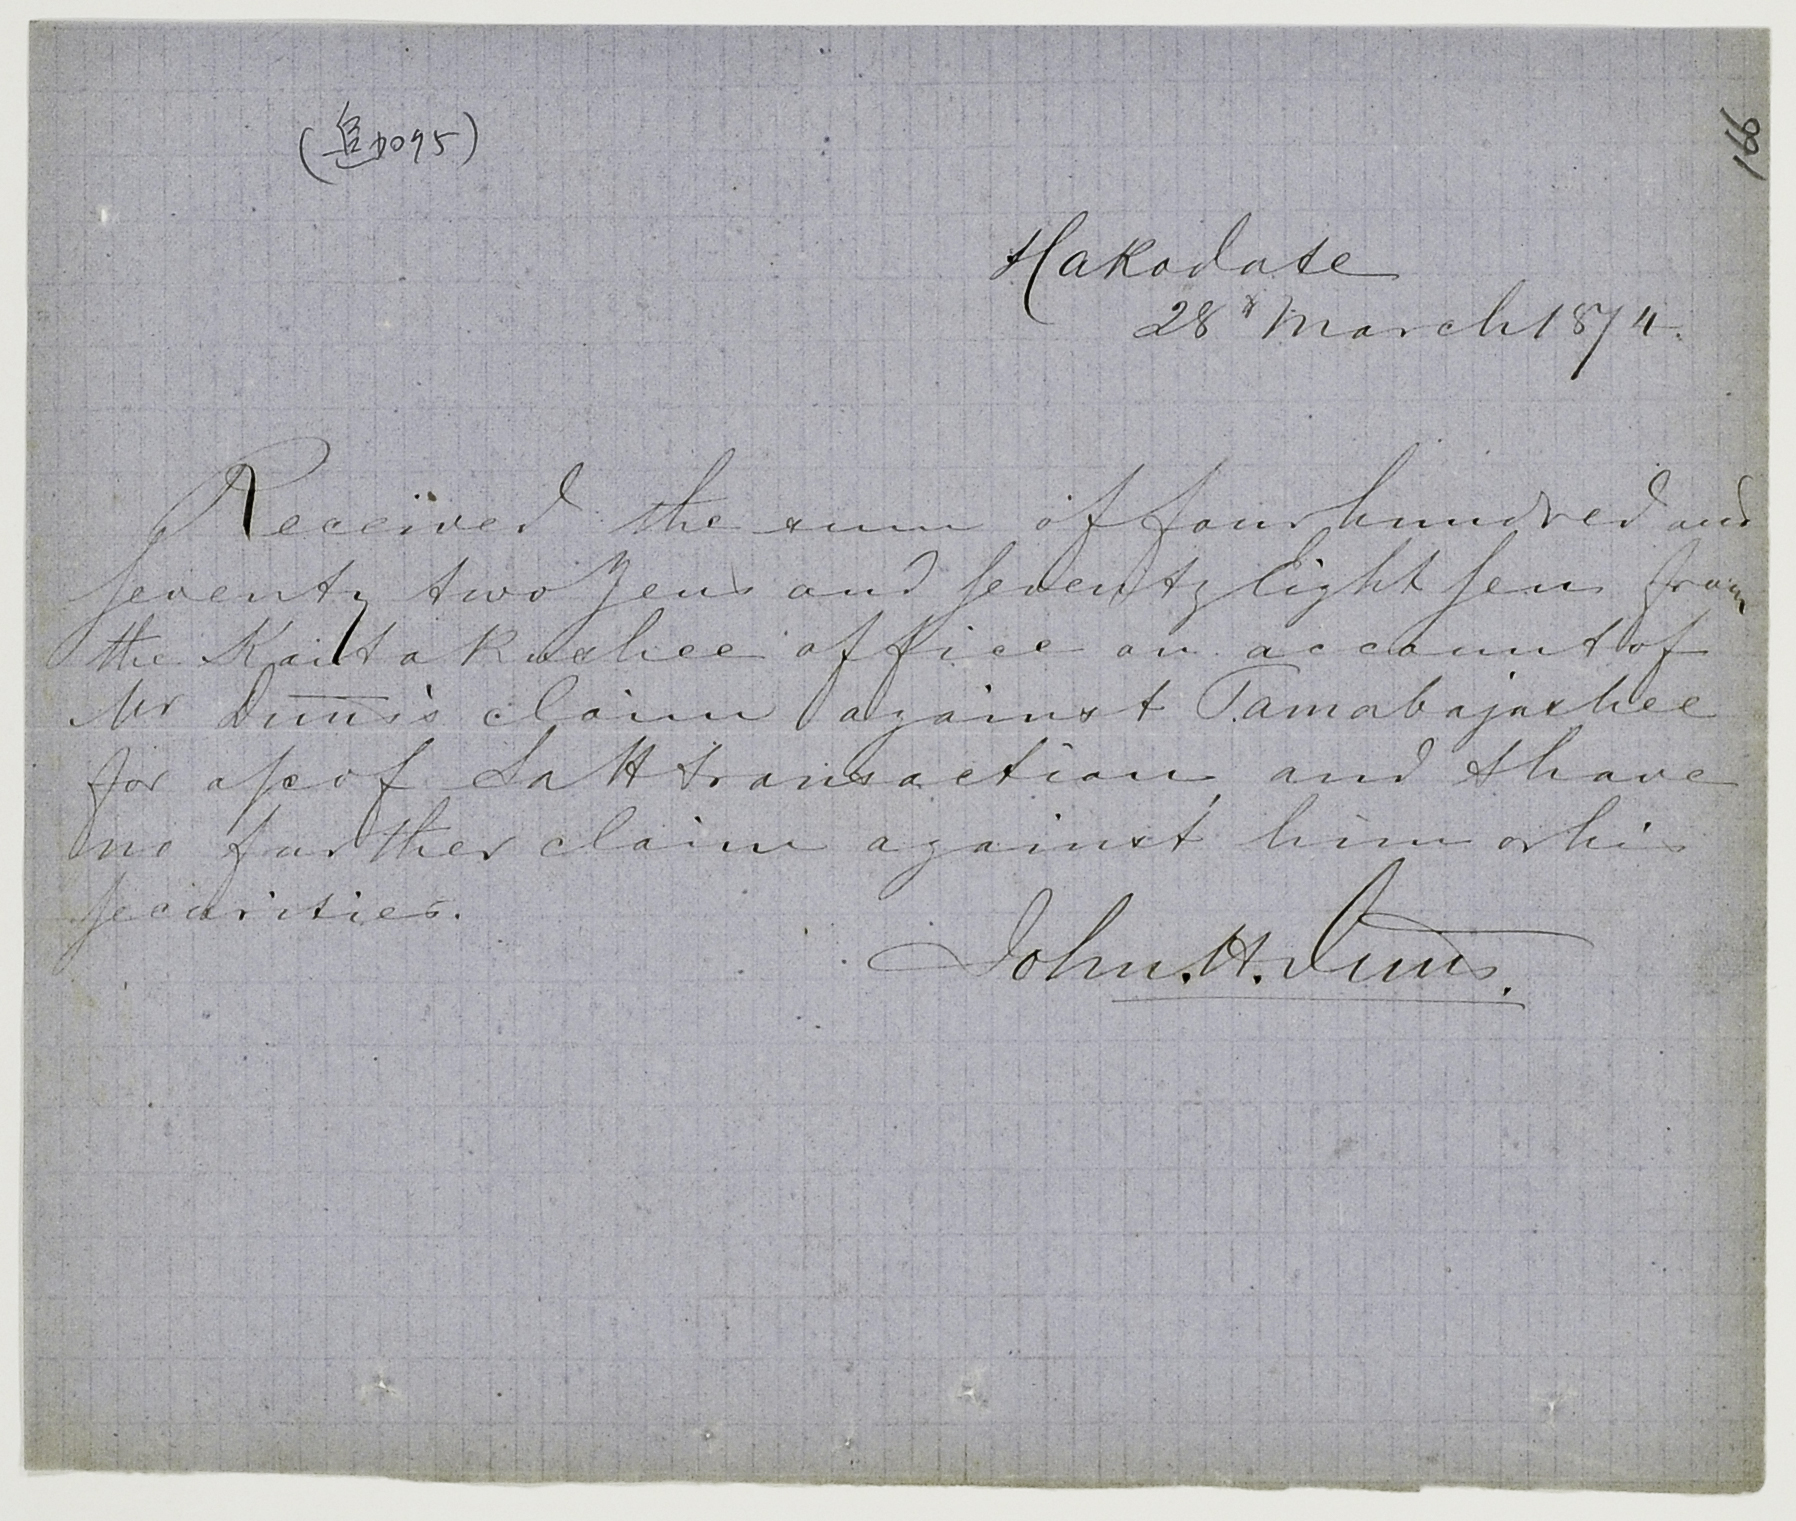 (追加095)
166
Hakodate
28th March 1874.
Received the sum of four hundred and
seventy two Yens and seventy eight sen from
the Kaitakushee office on account of
Mr Duus's claim against Tamabajashee
for a/c of Salt transaction, and I have
no further claim against him or his
securities.
John. H. Duus.